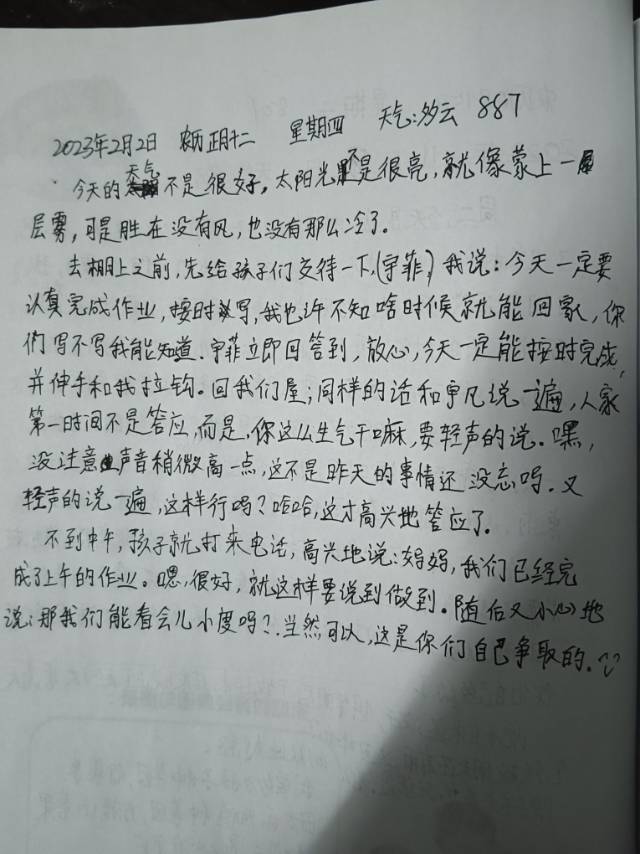 2023年2月2日 农历正月十二 星期四 天气:多云 887
今天的天气不是很好。太阳光不是很亮,就像蒙上一
层雾,可是胜在没有风,也没有那么冷了。
去棚上之前,先给孩子们交待一下,(宇菲)我说:今天一定要
认真完成作业,按时写,我也许不知啥时候就能回家,你
们写不写我能知道.宇菲立即回答到,放心,今天一定能按时完成,
并伸手和我拉钩。回我们屋;同样的话和宇凡说一遍,人家
第一时间不是答应,而是,你这么生气干嘛,要轻声的说。嘿,
没注意声音稍微高一点,这不是昨天的事情还没忘吗.又
轻声的说一遍,这样行吗?哈哈,这才高兴地答应了。
不到中午,孩子就打来电话,高兴地说:妈妈,我们已经完
成了上午的作业。嗯,很好,就这样要说到做到。随后又小心地
说:那我们能看会儿小度吗?.当然可以,这是你们自己争取的。